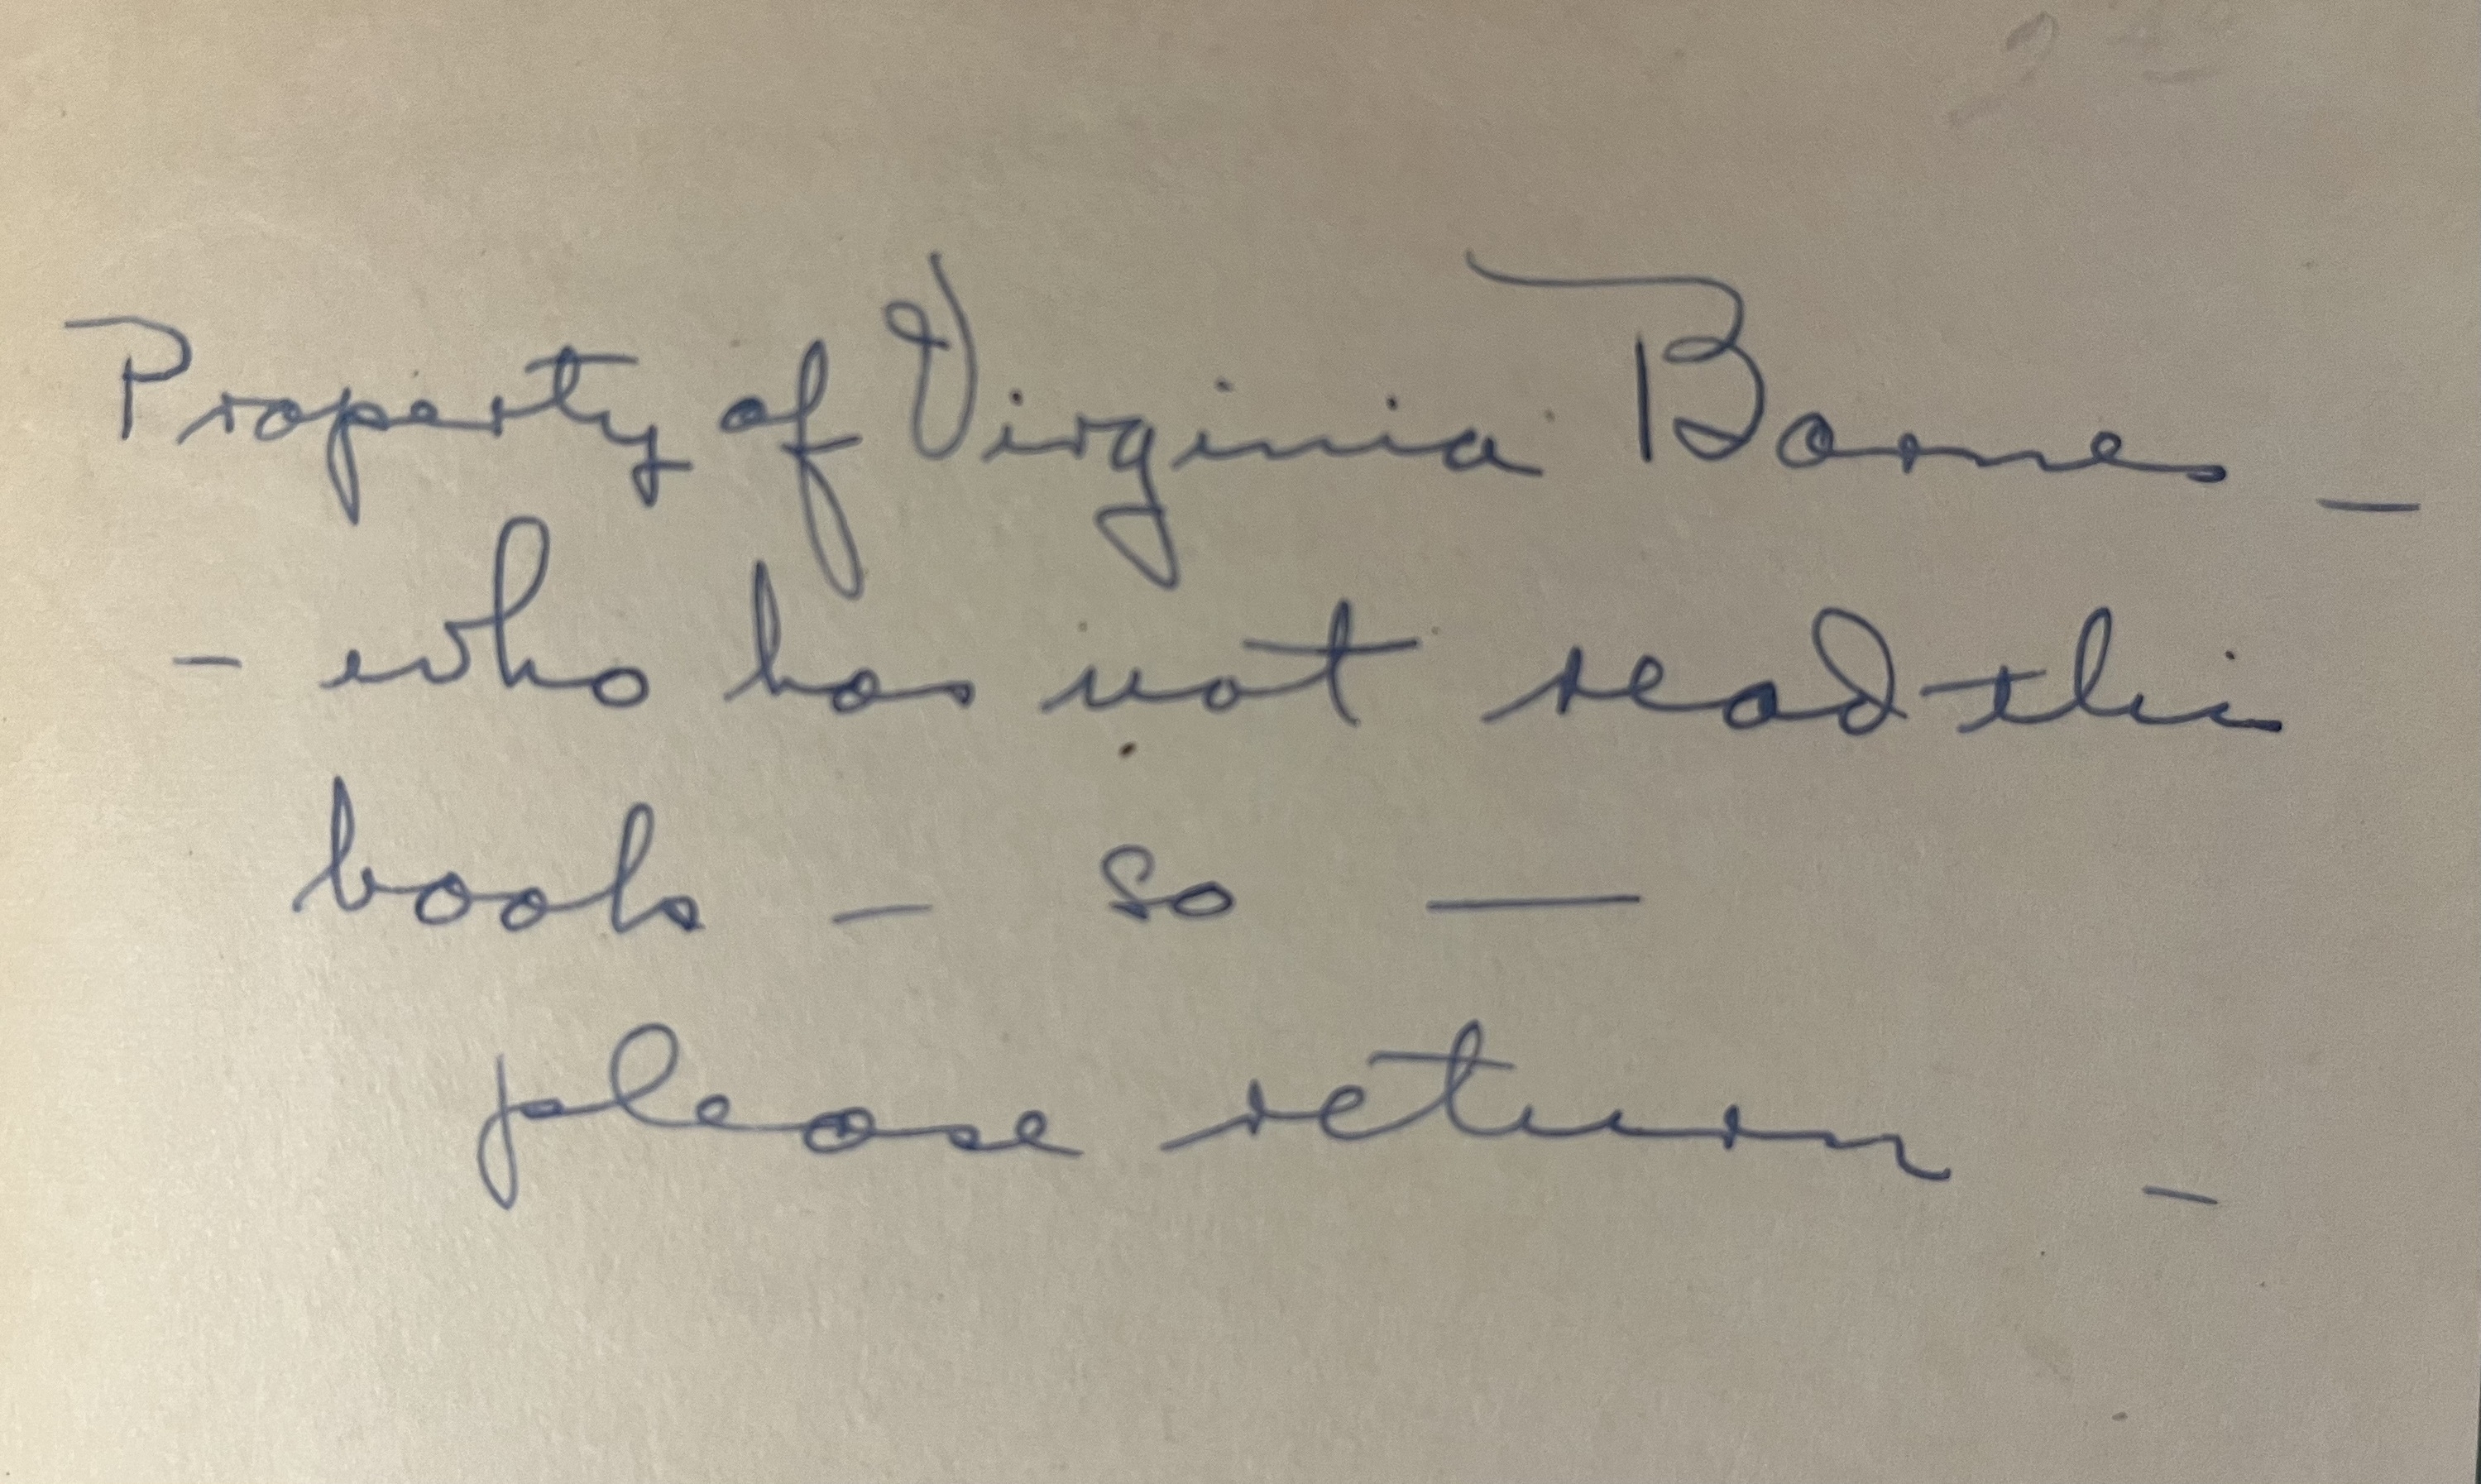 Property of Virginia Barnes —
- who has not read this
book - so —
please return -